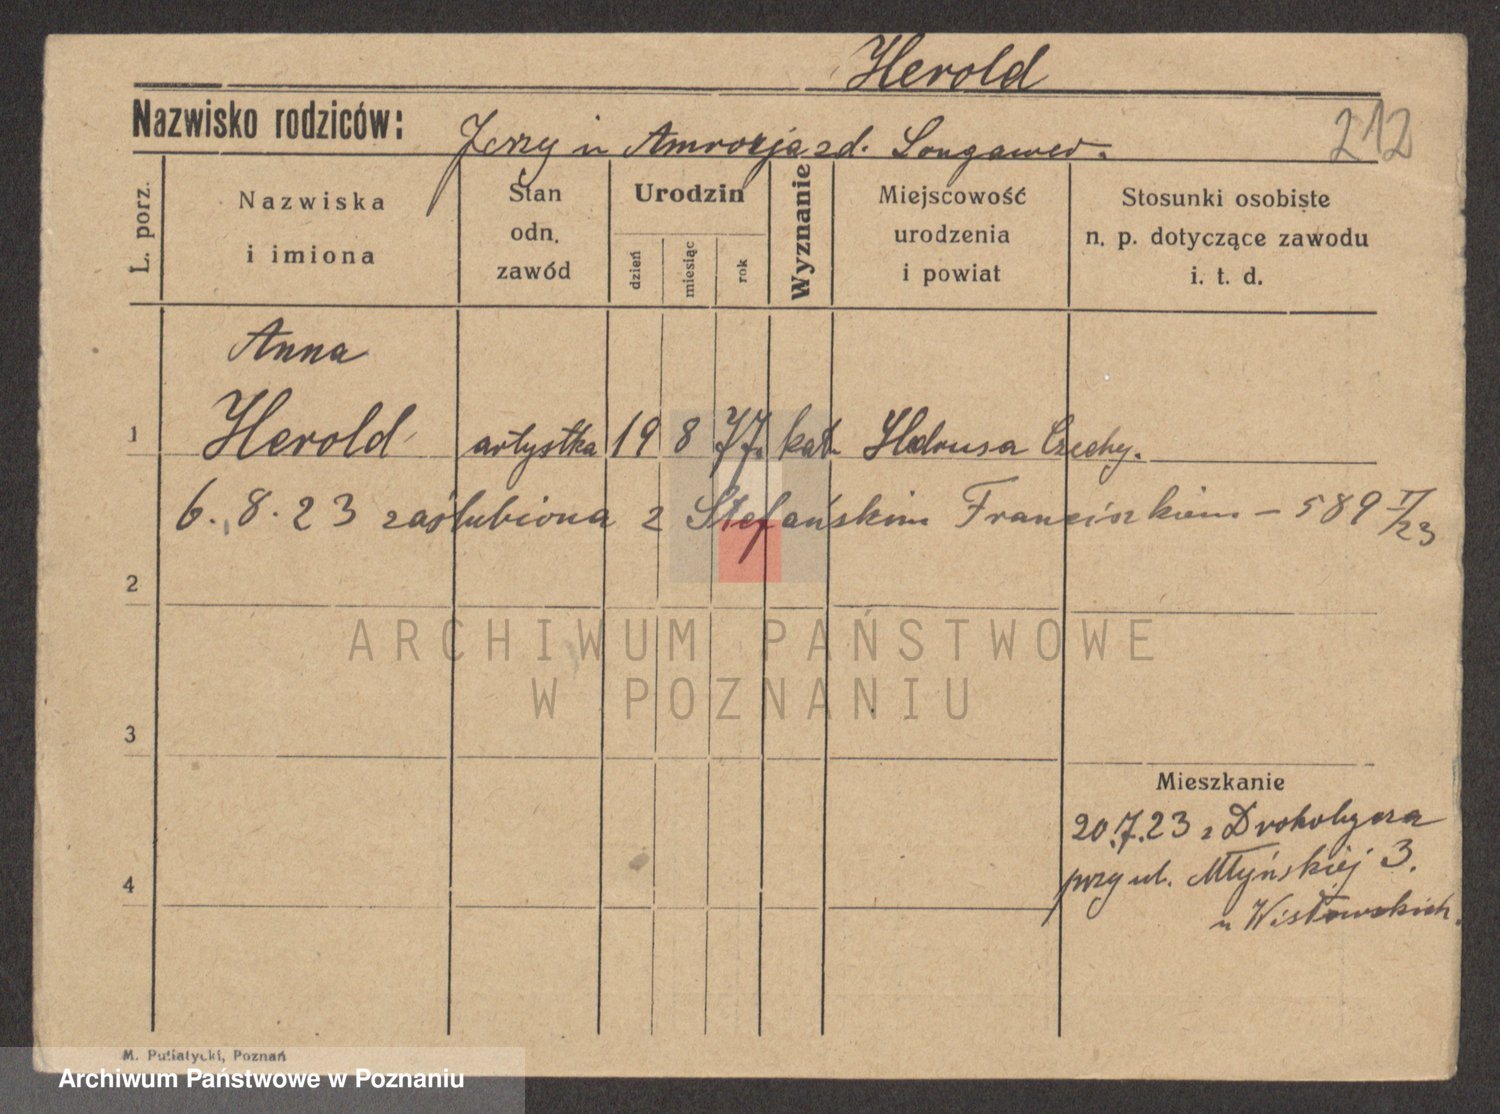 Herold
Nazwisko rodziców: Jerzy u Amrozja zd.
212
L. porz.
Nazwiska i imiona
Stan odn. zawód
Urodzin
dzień miesiąc rok
Wyznanie
Miejscowość urodzenia i powiat
Stosunki osobiste n. p. dotyczące zawodu i. t. d.
Anna
1 Herold artystka 19 8 77. kat. Czechy.
6. 8. 23 zaślubiona z Stefańskim Franciszkiem – 589 V/23
2
3
4
ARCHIWUM PAŃSTWOWE
W POZNANIU
Mieszkanie
20.7.23 z Drohobycza
przy ul. Młyńskiej 3.
u Wisłowskich.
M. Putiatycki, Poznań
Archiwum Państwowe w Poznaniu